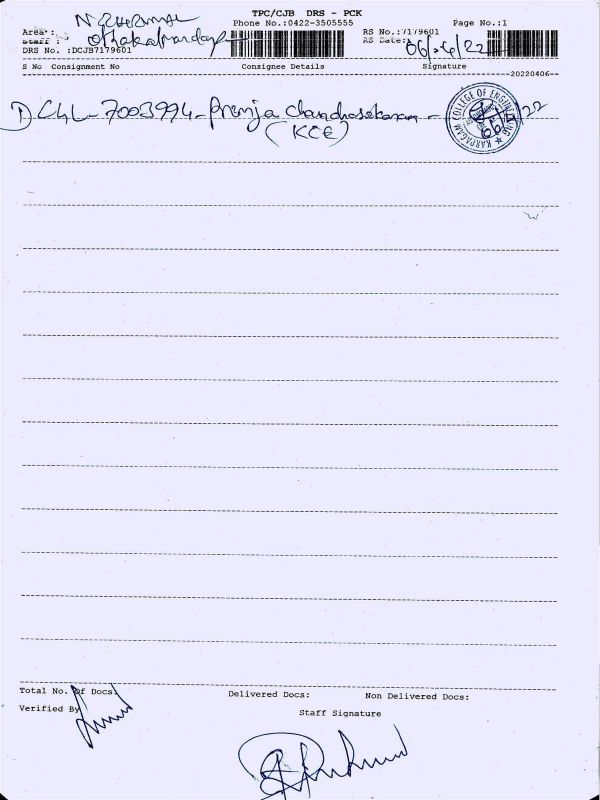 TPC/CJB DRS - PCK
Phone No.:0422-3505555 Page No.:1
Area : RS No.:7179601
Staff : RS Date: 06/ 4/22
DRS No. :DCJB7179601
S No Consignment No Consignee Details Signature
20220406
1) CHL-7003994- Premja Chandrasekaran -
(KCE)
KARPAGAM COLLEGE OF ENGINEERING
Total No. Of Docs: Delivered Docs: Non Delivered Docs:
Verified By Staff Signature